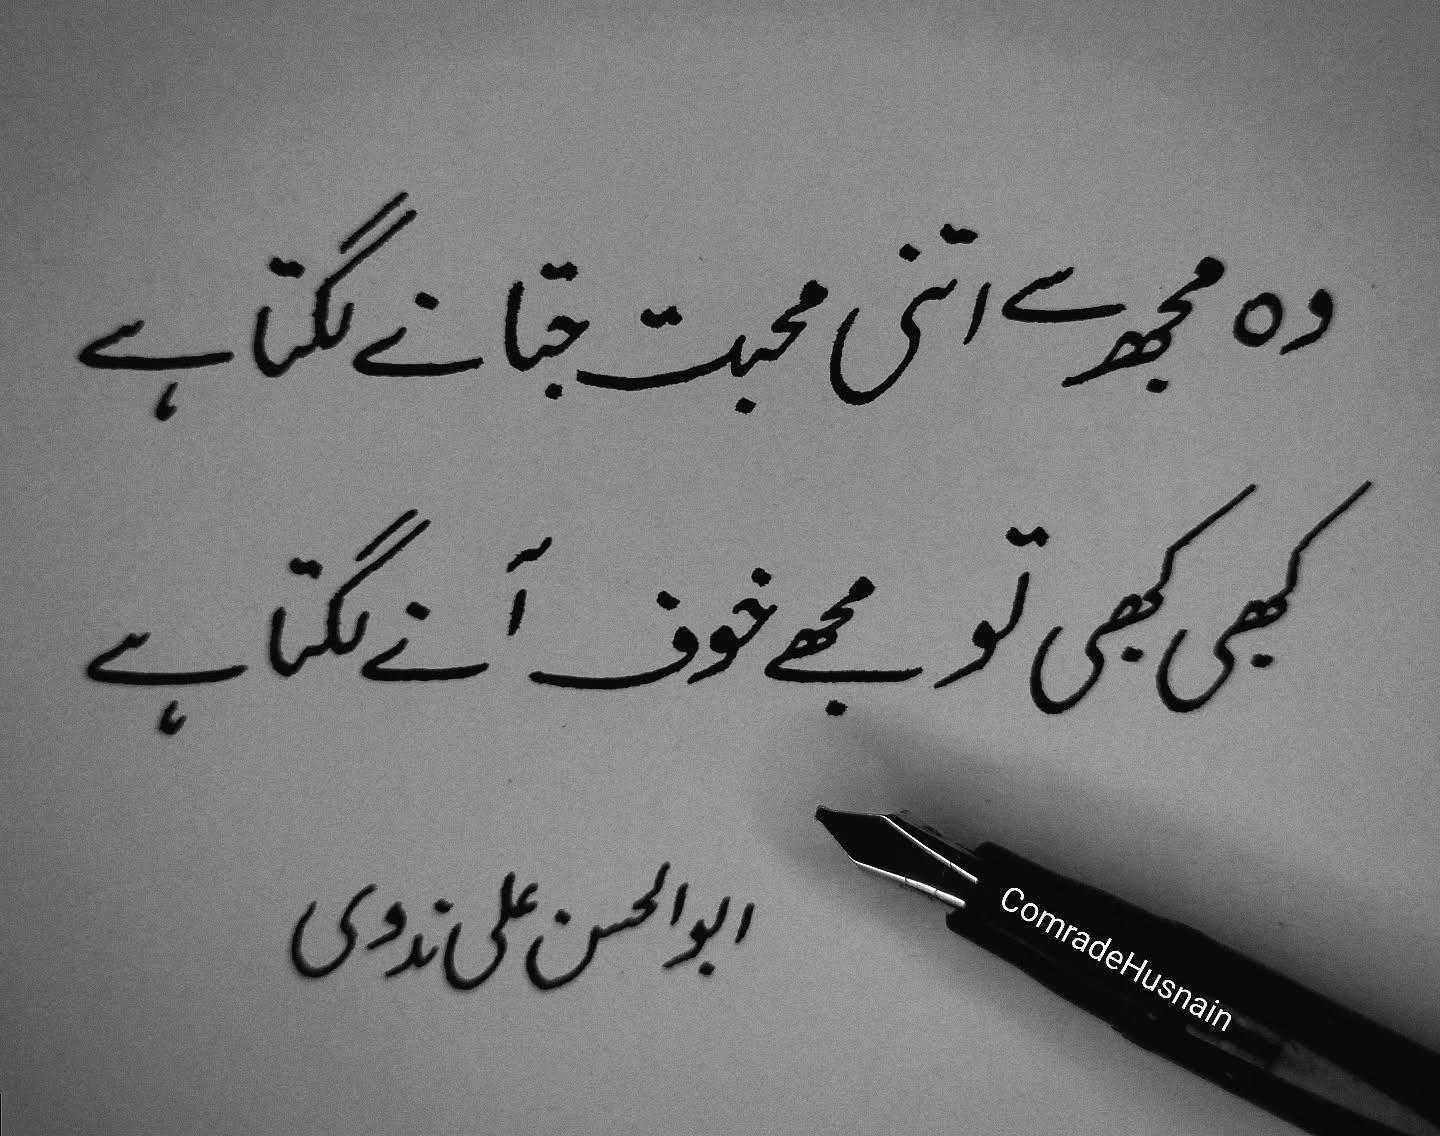 وہ مجھ سے اتنی محبت جتانے لگتا ہے
کبھی کبھی تو مجھے خوف آنے لگتا ہے
ابوالحسن علی ندوی
ComradeHusnain